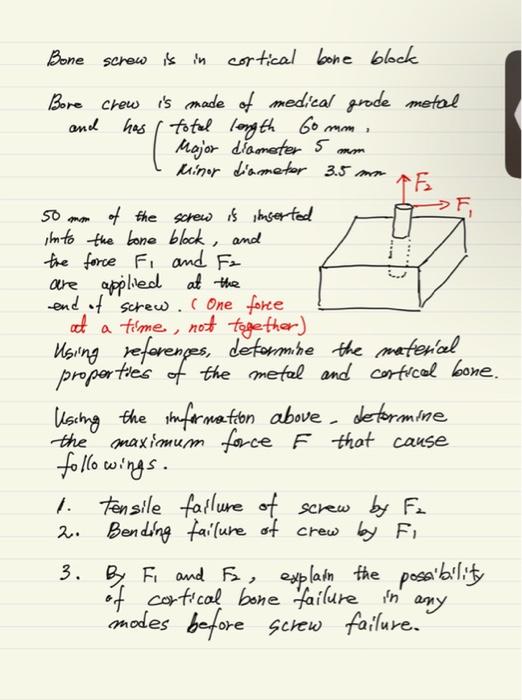 Bone screw is in cortical bone block
Bore crew is made of medical grade metal
and has ( total length 60 mm,
Major diameter 5 mm
Minor diameter 3.5 mm
F₂
F₁
50 mm of the screw is inserted
into the bone block, and
the force F₁ and F₂
are applied at the
end of screw. (One force
at a time, not together)
Using references, determine the material
properties of the metal and cortical bone.
Using the information above, determine
the maximum force F that cause
followings.
1. Tensile failure of screw by F₂
2. Bending failure of crew by F₁
3. By F₁ and F₂, explain the possibility
of cortical bone failure in any
modes before screw failure.